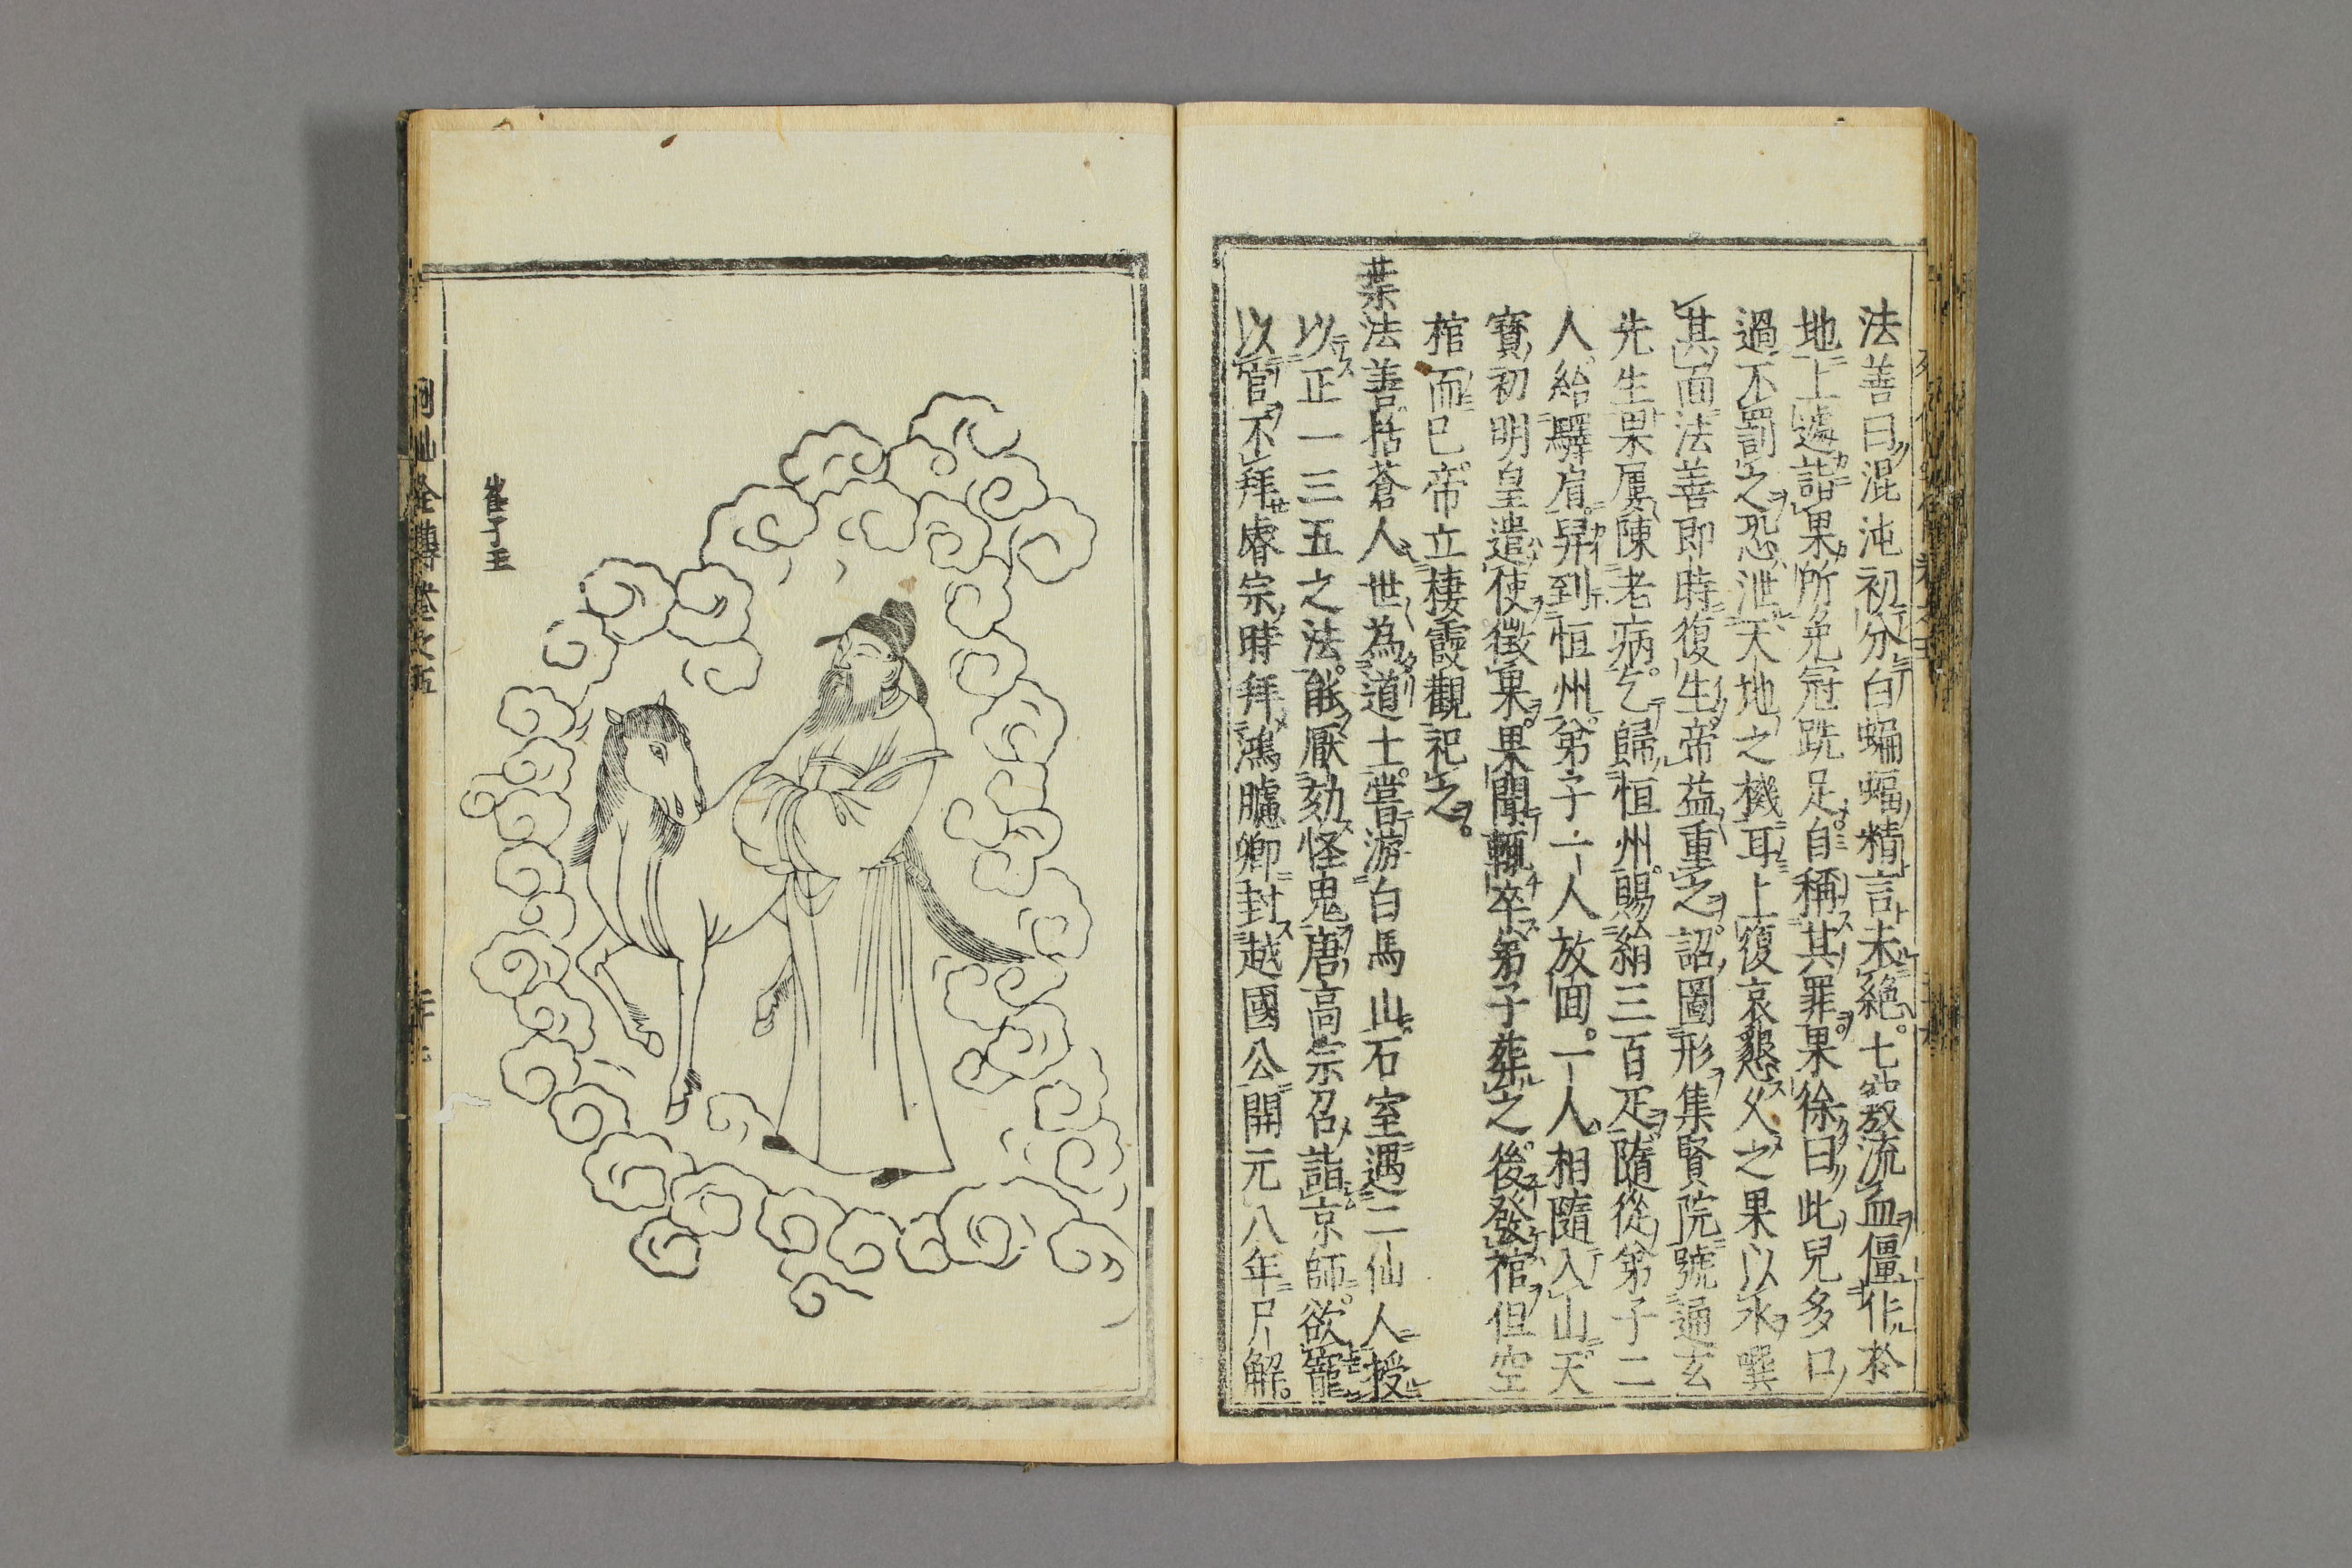 法善曰混沌初分白蝙蝠精言未絶。七竅流血僵仆於
地上遽詣果所免冠跣足。自稱其罪。果徐曰此兒多口
過不罰之恐泄天地之機耳上復哀懇久之果以水噀
其面法善即時復生。帝益重之。詔圖形集賢院號通玄
先生果屢陳老病。乞歸恒州。賜絹三百疋隨從弟子二
人。給驛肩舁到恒州。弟子一人放回。一人相隨入山。天
寶初明皇遣使徵果。果聞輒卒弟子葬之。後發棺但空
棺而已。帝立棲霞觀祀之。
葉法善括蒼人世為道士。嘗游白馬山。石室遇二仙人授
以正一三五之法。能厭劾怪鬼。唐高宗召詣京師。欲寵
以官不拜睿宗時拜鴻臚卿封越國公開元八年尸解。
崔子玉
列仙全傳卷之五